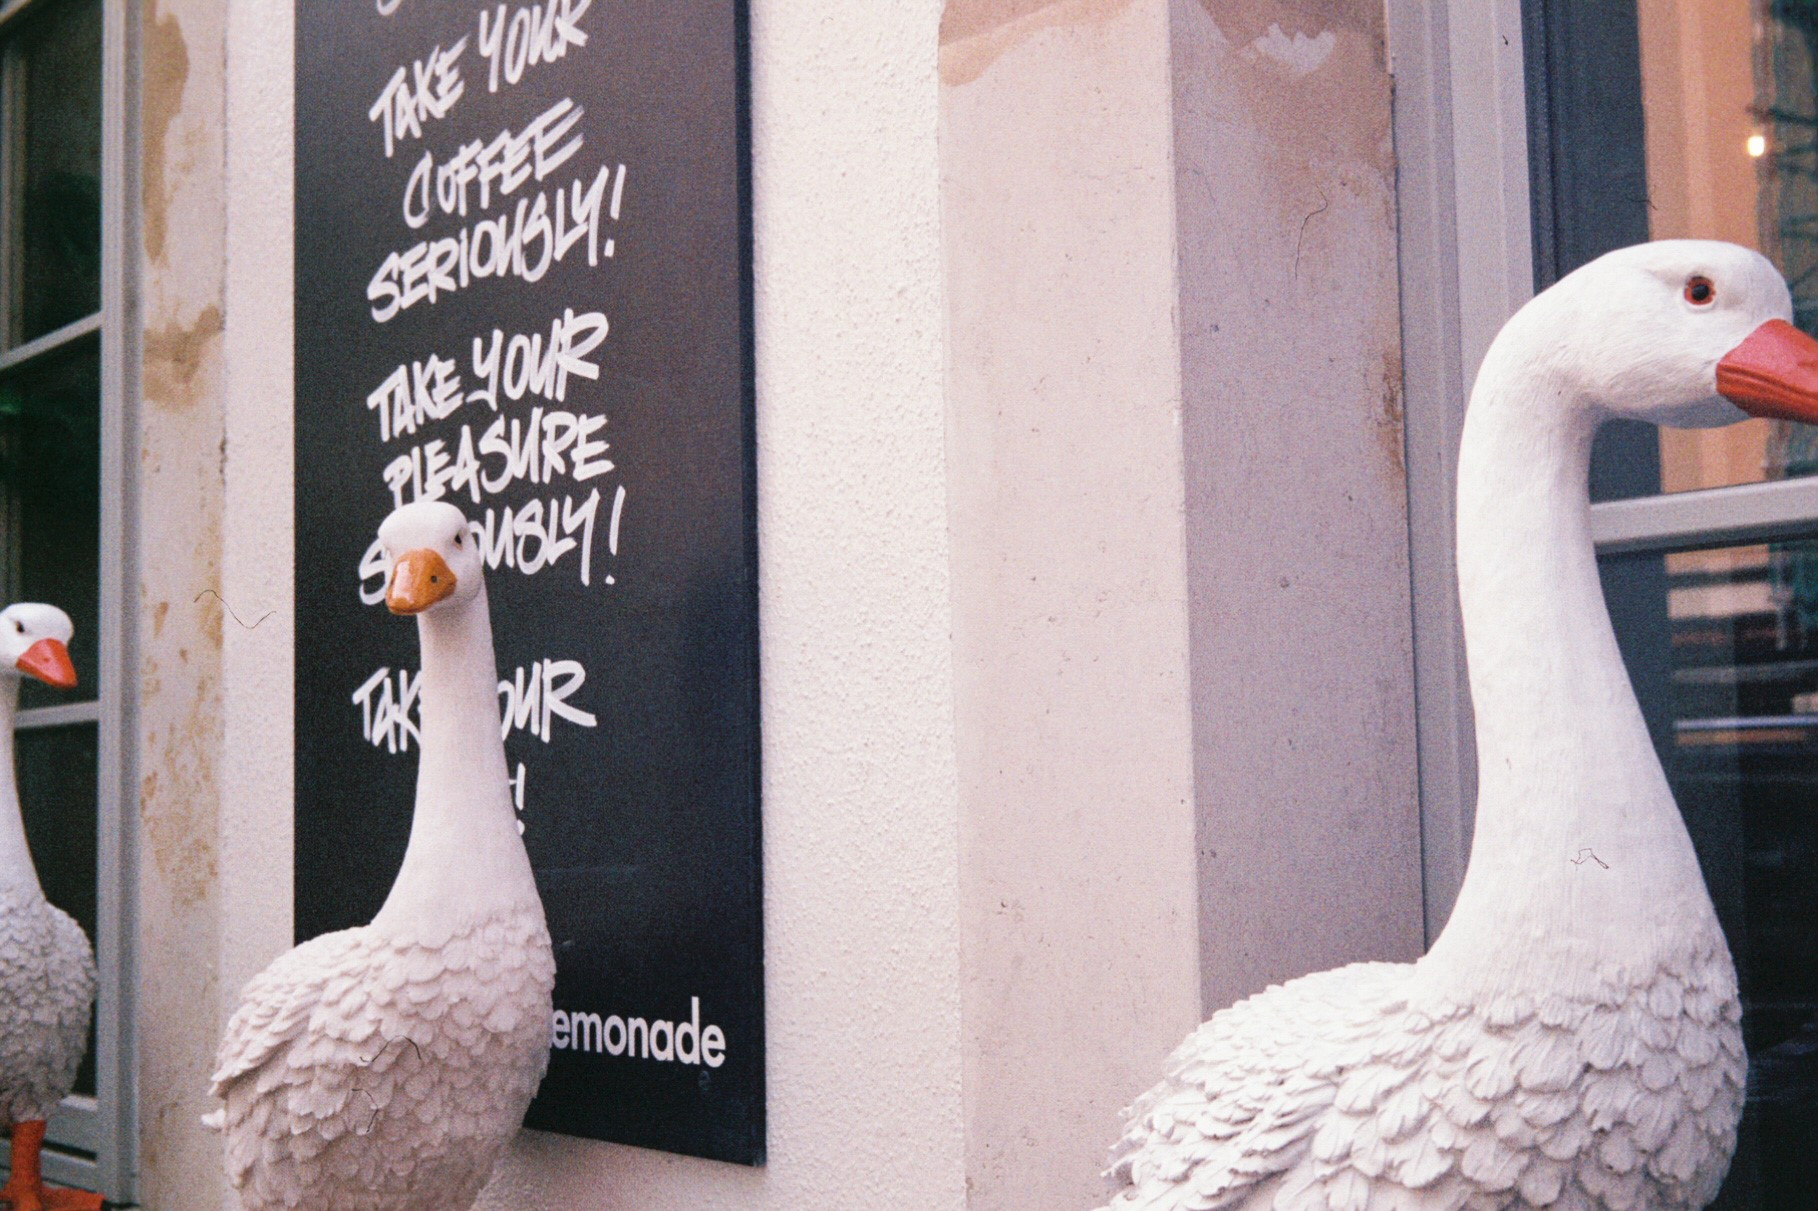 TAKE YOUR
COFFEE
SERIOUSLY!
TAKE YOUR
PLEASURE
S OUSLY!
TAK OUR
H!
emonade